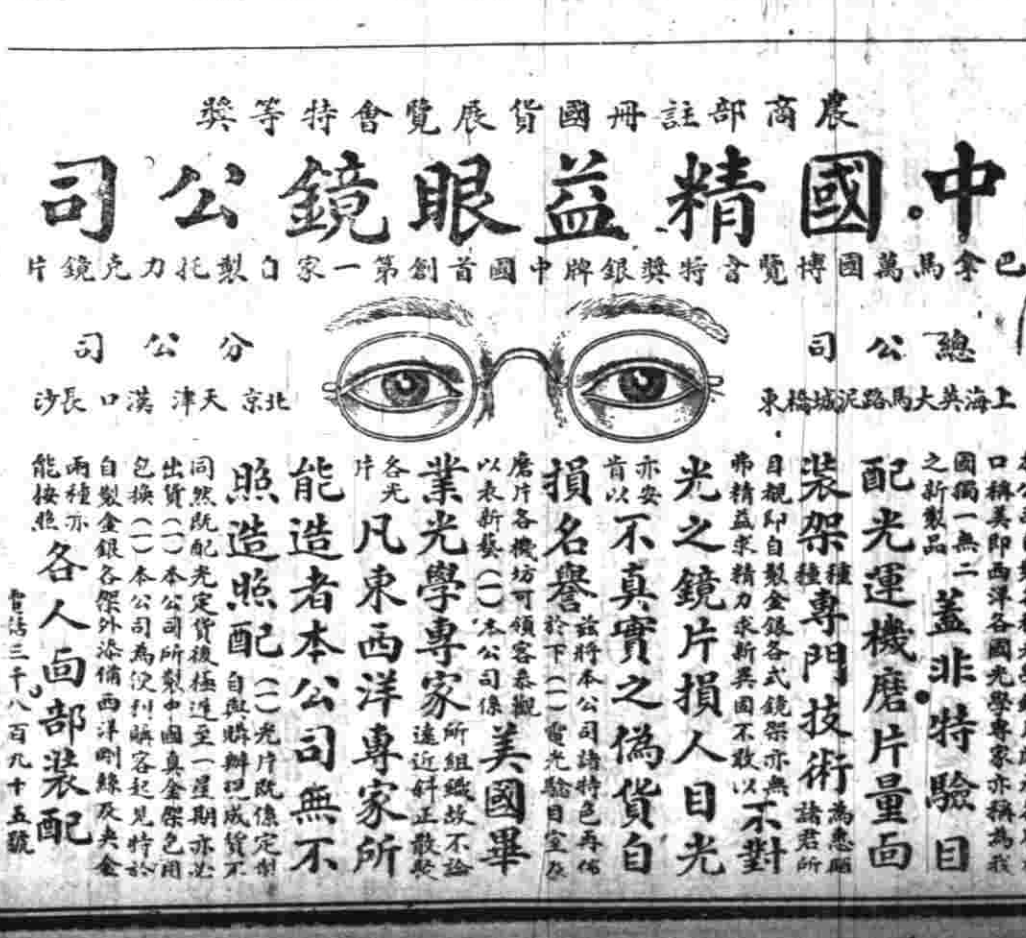 農商部註冊國貨展覽會特等獎
中國精益眼鏡公司
巴拿馬萬國博覽會特獎銀牌中國首創第一家自製托力克鏡片
總公司
上海英大馬路泥城橋東
分公司
北京 天津 漢口 長沙
口稱美即西洋各國光學專家亦稱為我
國獨一無二
之新製品
蓋非特驗目
配光運機磨片量面
裝架種種專門技術為惠顧
諸君所
目覩即自製金銀各式鏡架亦無
弗精益求精力求新異國不敢以
不對
光之鏡片損人目光
亦妄
肯以
不真實之偽貨自
損名譽茲將本公司諸特色再佈
於下(一)電光驗目室及
磨片各機坊可領客參觀
以表新藝(一)本公司係
美國畢
業光學專家所組織故不論
遠近斜正散
各光
片
凡東西洋專家所
能造者本公司無不
照造照配(一)光片既係定製
自與購辦現成貨不
同然既配光定貨後極遲至一星期亦必
出貨(一)本公司所製中國真金架包用
包換(一)本公司為便利購客起見特於
自製金銀各架外添備西洋剛絲及夾金
兩種亦
能按照
各人面部裝配
電話三千八百九十五號